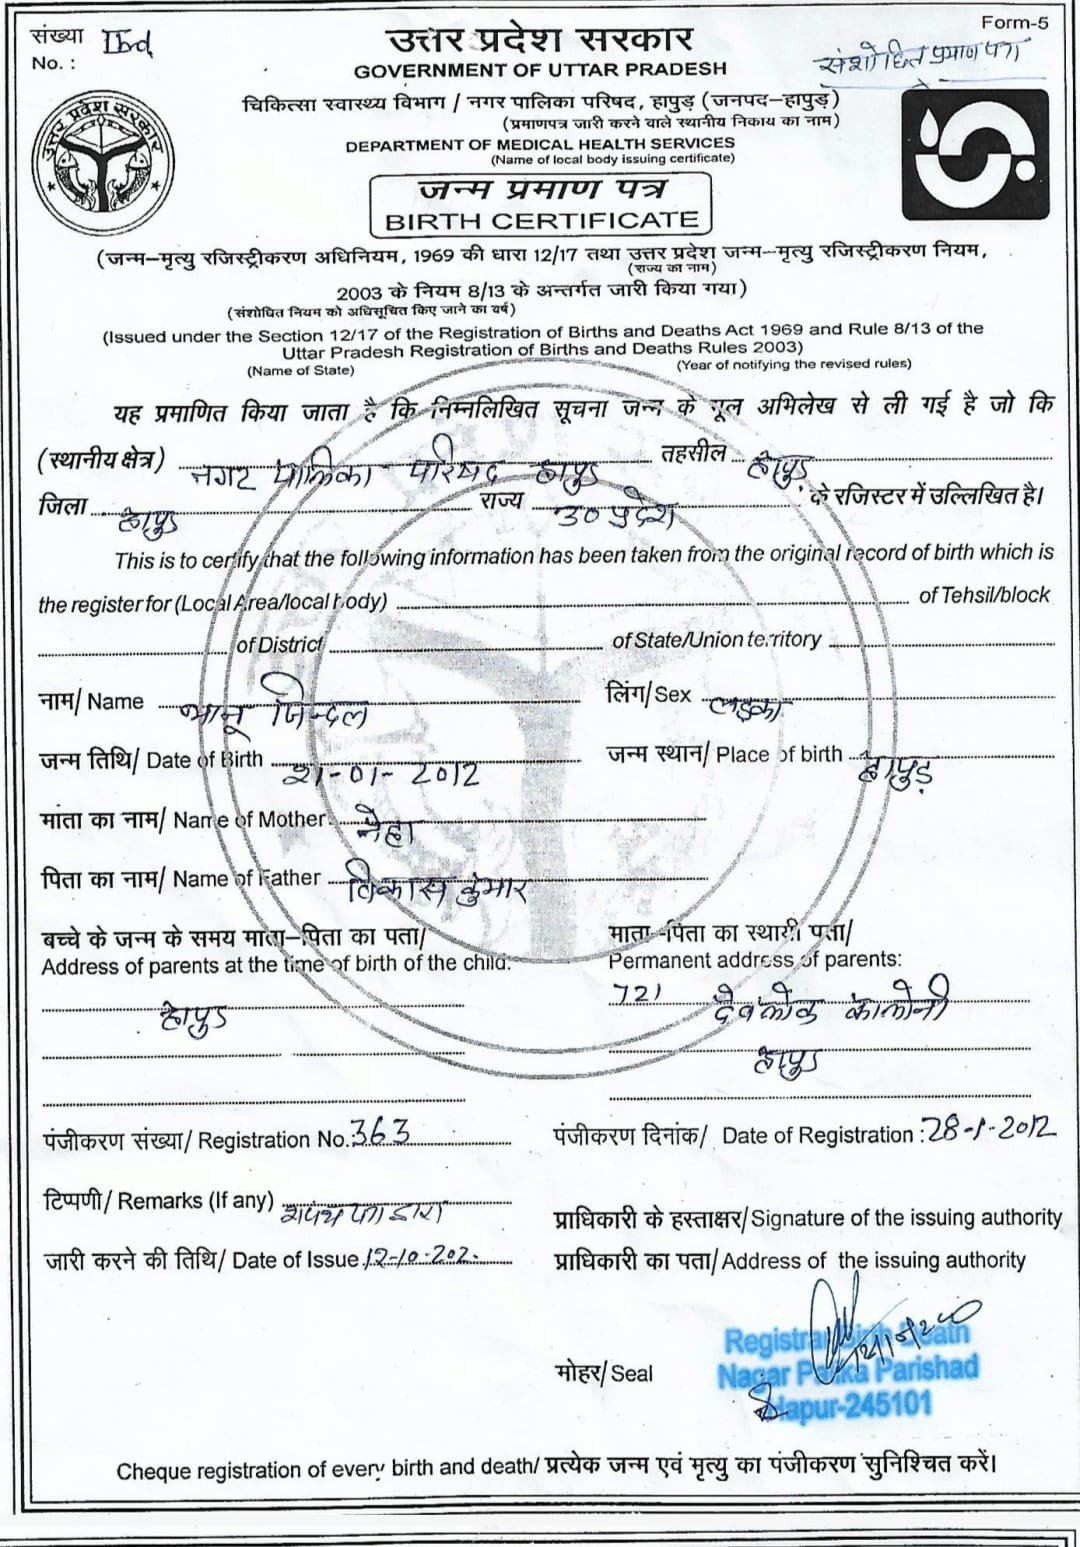 संख्या IInd
No. :
Form-5
संशोधित प्रमाण पत्र
उत्तर प्रदेश सरकार
GOVERNMENT OF UTTAR PRADESH
चिकित्सा स्वास्थ्य विभाग / नगर पालिका परिषद, हापुड़ (जनपद–हापुड़)
(प्रमाणपत्र जारी करने वाले स्थानीय निकाय का नाम)
DEPARTMENT OF MEDICAL HEALTH SERVICES
(Name of local body issuing certificate)
उत्तर प्रदेश सरकार
जन्म प्रमाण पत्र
BIRTH CERTIFICATE
(जन्म–मृत्यु रजिस्ट्रीकरण अधिनियम, 1969 की धारा 12/17 तथा उत्तर प्रदेश जन्म–मृत्यु रजिस्ट्रीकरण नियम,
(राज्य का नाम)
2003 के नियम 8/13 के अन्तर्गत जारी किया गया)
(संशोधित नियम को अधिसूचित किए जाने का वर्ष)
(Issued under the Section 12/17 of the Registration of Births and Deaths Act 1969 and Rule 8/13 of the
Uttar Pradesh Registration of Births and Deaths Rules 2003)
(Name of State) (Year of notifying the revised rules)
यह प्रमाणित किया जाता है कि निम्नलिखित सूचना जन्म के मूल अभिलेख से ली गई है जो कि
(स्थानीय क्षेत्र) नगर पालिका परिषद हापुड तहसील हापुड़
जिला हापुड राज्य उ० प्रदेश के रजिस्टर में उल्लिखित है।
This is to certify that the following information has been taken from the original record of birth which is
the register for (Local Area/local body) of Tehsil/block
of District of State/Union territory
नाम/ Name भानू जिन्दल लिंग/Sex लड़का
जन्म तिथि/ Date of Birth 21-01-2012 जन्म स्थान/ Place of birth हापुड़
मांता का नाम/ Name of Mother. नेहा
पिता का नाम/ Name of Father विकास कुमार
बच्चे के जन्म के समय माता–पिता का पता/ माता–पिता का स्थायी पता/
Address of parents at the time of birth of the child. Permanent address of parents:
हापुड 721 देवलोक कालोनी
हापुड
पंजीकरण संख्या/ Registration No.:363 पंजीकरण दिनांक/ Date of Registration :28-1-2012
टिप्पणी/ Remarks (If any) शपथ पत्र द्वारा
प्राधिकारी के हस्ताक्षर/Signature of the issuing authority
जारी करने की तिथि/ Date of Issue 12-10-202 प्राधिकारी का पता/Address of the issuing authority
Registrar Birth Death
मोहर/ Seal Nagar Palika Parishad
Hapur-245101
Cheque registration of every birth and death/ प्रत्येक जन्म एवं मृत्यु का पंजीकरण सुनिश्चित करें।